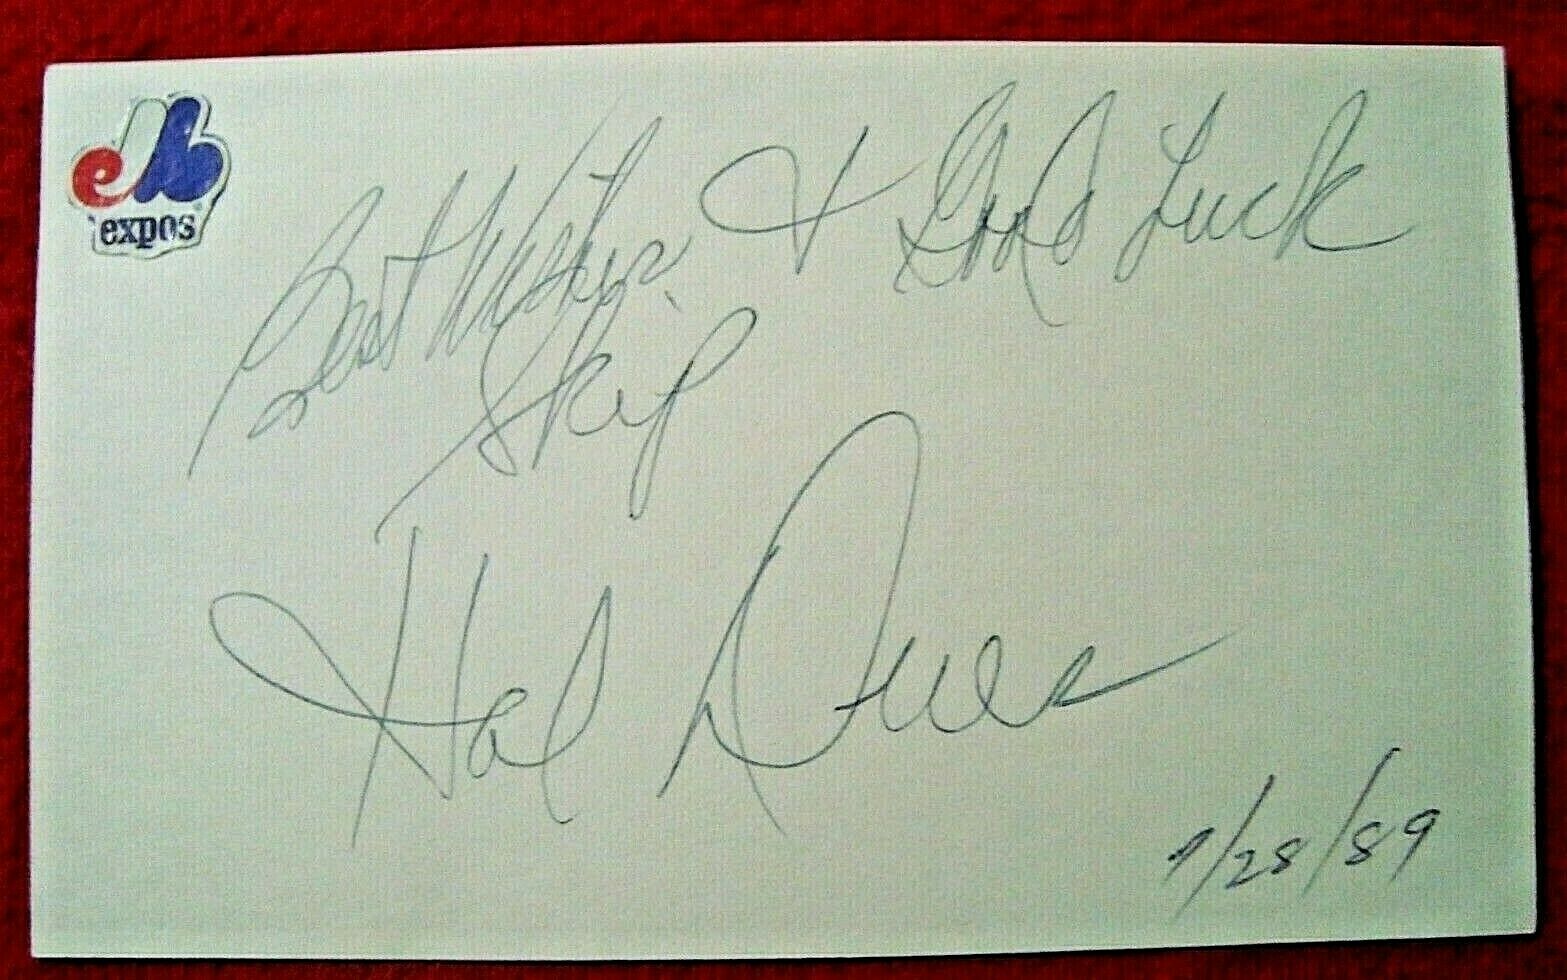 expos
Best Wishes & Good Luck
Skip
Hal Dues
9/28/89